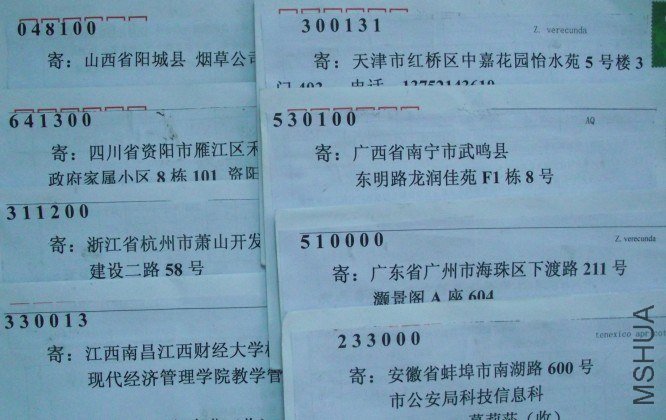 048100
寄：山西省阳城县 烟草公司
641300
寄：四川省资阳市雁江区
政府家属小区 8 栋 101 资阳
311200
寄：浙江省杭州市萧山开发
建设二路 58 号
330013
寄：江西南昌江西财经大学
现代经济管理学院教学管
300131
Z. verecunda
寄：天津市红桥区中嘉花园怡水苑 5 号楼 3
530100
AQ
寄：广西省南宁市武鸣县
东明路龙润佳苑 F1 栋 8 号
510000
Z. verecunda
寄：广东省广州市海珠区下渡路 211 号
灏景阁 A 座 604
233000
tenexico apricot
寄：安徽省蚌埠市南湖路 600 号
市公安局科技信息科
（收）
MSHUA